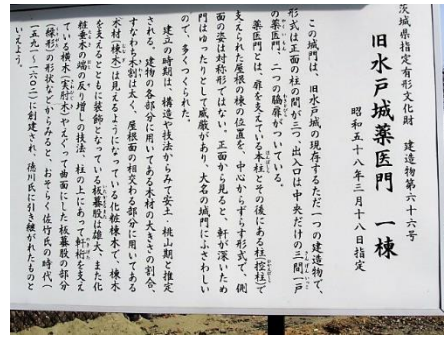 茨城県指定有形文化財　建造物第六十六号
旧水戸城薬医門　一棟
昭和五十八年三月十八日指定
この城門は、旧水戸城の現存するただ一つの建造物で、
形式は正面の柱の間が三つ、出入口は中央だけの三間一戸
薬医門、二つの脇扉がついている。
薬医門とは、扉を支えている本柱とその後にある柱(控柱)で
支えられた屋根の棟の位置を、中心からずらす形式で、側
面の姿は対称形ではない。正面から見ると、軒が深いため
門はゆったりとして威厳があり、大名の城門にふさわしい
ので、多くつくられた。
建立の時期は、構造や技法からみて安土・桃山期と推定
される。建物の各部分に用いてある木材の大きさの割合、
すなわち木割は太く、屋根面の相交わる部分に用いてある
木材(棟木)は見えるようになっている化粧棟木で、棟木
を支えるとともに装飾となっている板蟇股は雄大、また化
粧垂木の端の反り増しの技法、柱の上にあって軒桁を支え
ている横木(実肘木)やえぐって曲面にした板蟇股の部分
(繰形)の形状などからみると、おそらく佐竹氏の時代(一
五九一〜一六〇二)に創建され、徳川氏に引き継がれたものと
いえよう。